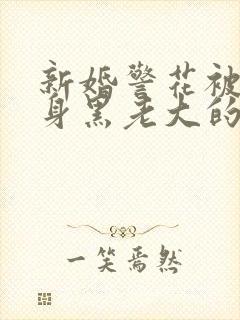 新婚警花被
身黑老大的
一笑焉然